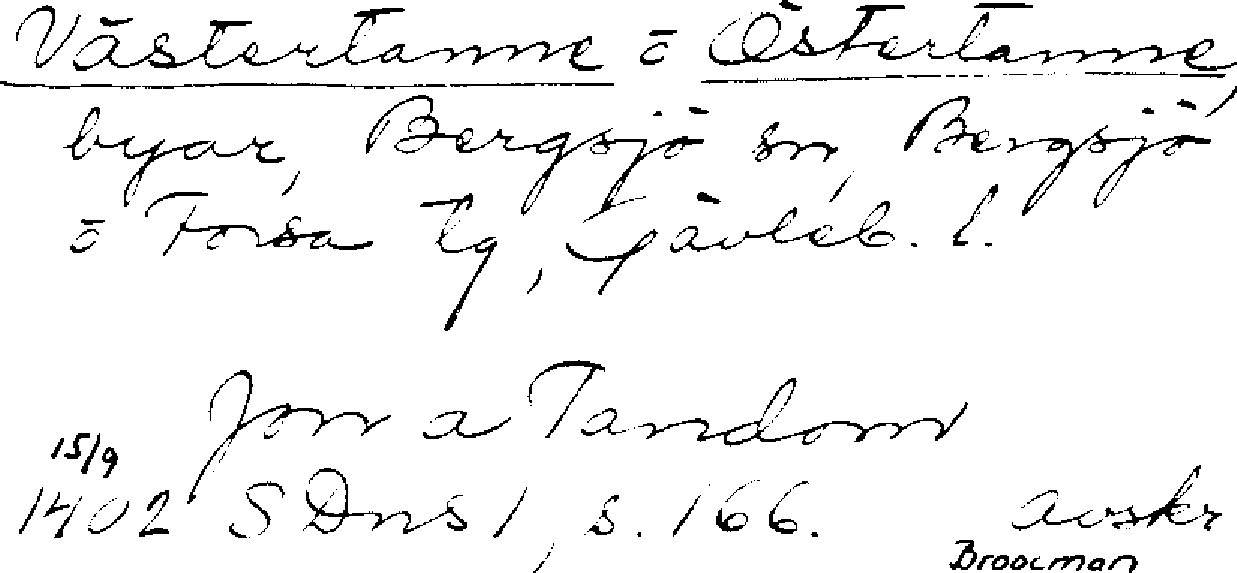 Västertanne o Östertanne,
byar, Bergsjö sn, Bergsjö
o Forsa tg, Gävleb. l.
Jon a Tandom
15/9
1402 SDns 1, s. 166. avskr
Brooman